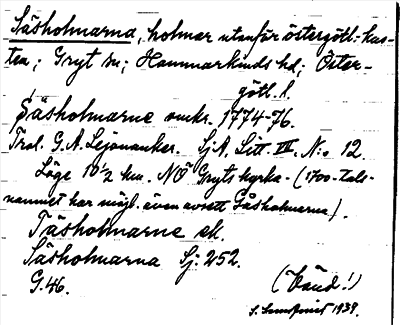 Såsholmarna, holmar utanför östergötl. kus-
ten; Gryt sn; Hammarkinds hd; Öster-
götl. l.
Såsholmarne omkr. 1774-76.
Trol. G. A. Lejonanker. SjA. Litt. III. N:o 12.
Läge 10 1/2 km. NÖ Gryts kyrka. (1700-tals-
namnet kar möjl. även avsett Gåsholmarna).
Tåsholmarne ek.
Såsholmarna Sj: 252.
G. 46.
(Vänd!)
1939.